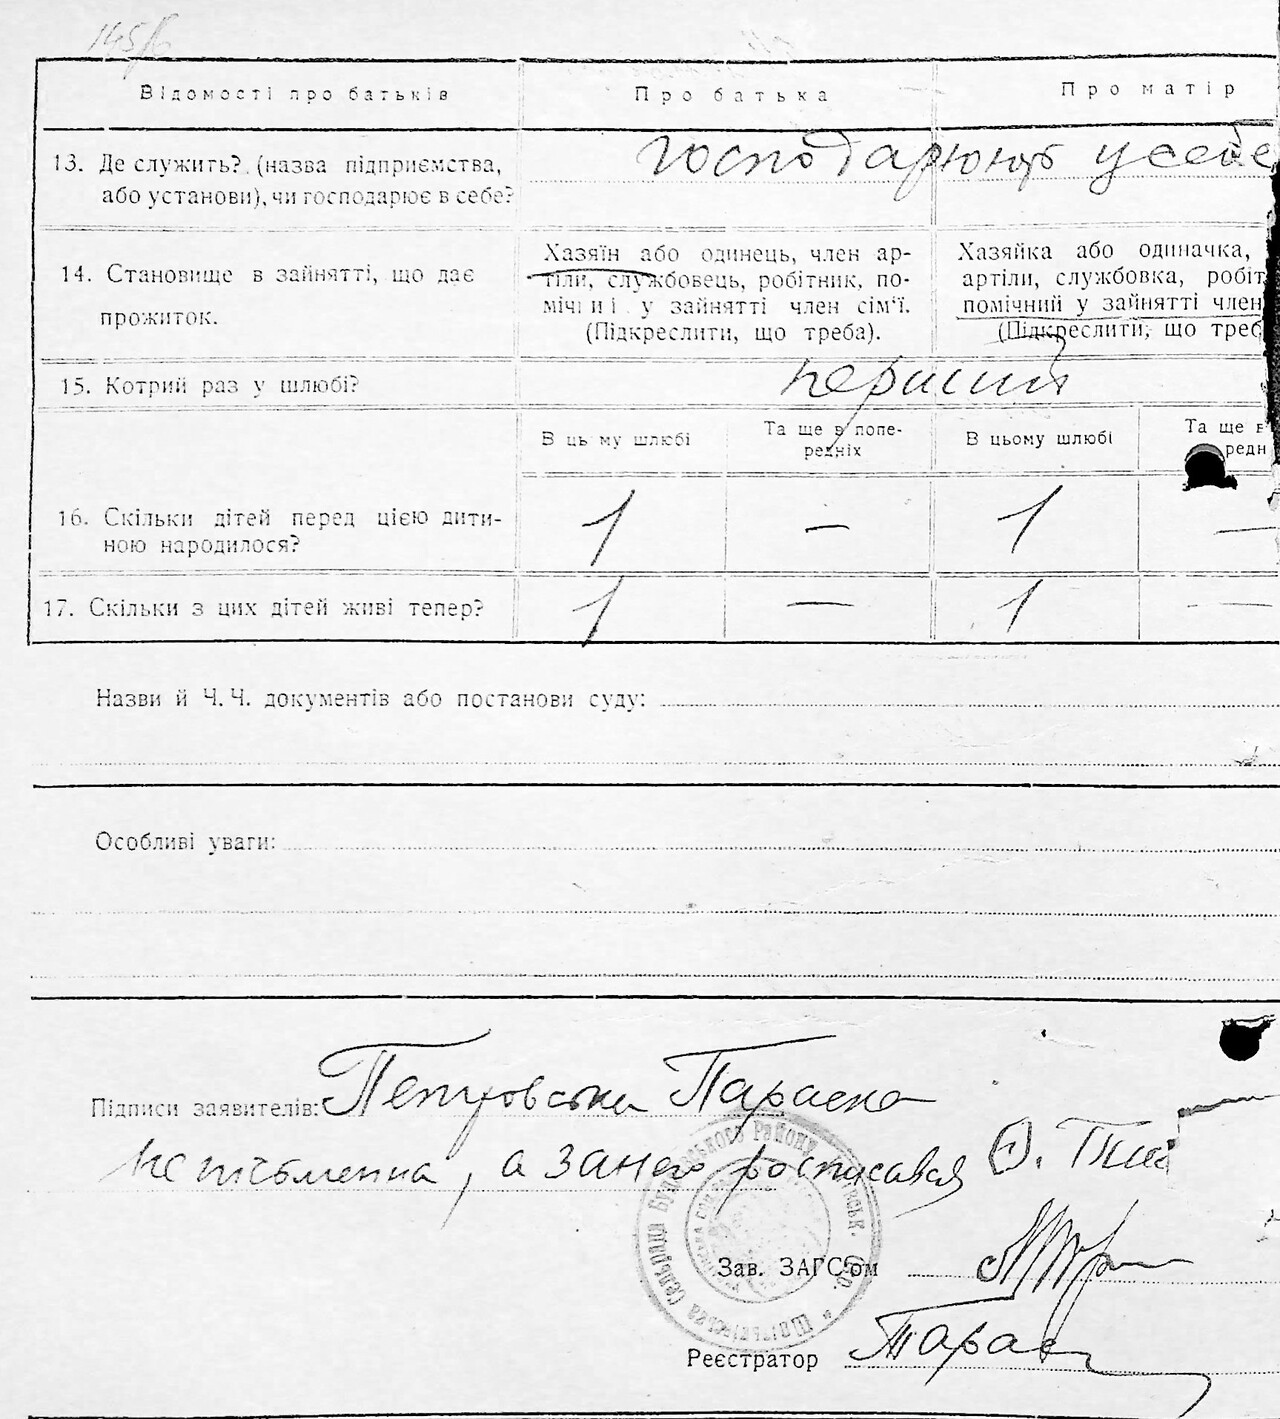 145/6
Відомості про батьків
Про батька
Про матір
13. Де служить? (назва підприємства,
або установи), чи господарює в себе?
господарюють у себе
14. Становище в зайнятті, що дає
прожиток.
Хазяїн або одинець, член ар-
тіли, службовець, робітник, по-
мічний у зайнятті член сім'ї.
(Підкреслити, що треба).
Хазяйка або одиначка,
артіли, службовка, робіт
помічний у зайнятті член
(Підкреслити, що треб
15. Котрий раз у шлюбі?
перший
В цьому шлюбі
Та ще в попе-
редніх
В цьому шлюбі
Та ще в
редн
16. Скільки дітей перед цією дити-
ною народилося?
1 — 1 —
17. Скільки з цих дітей живі тепер?
1 — 1 —
Назви й Ч. Ч. документів або постанови суду:
Особливі уваги:
Підписи заявителів: Петровська Параска
не письменна, а за него росписався
Зав. ЗАГС'ом
Реєстратор